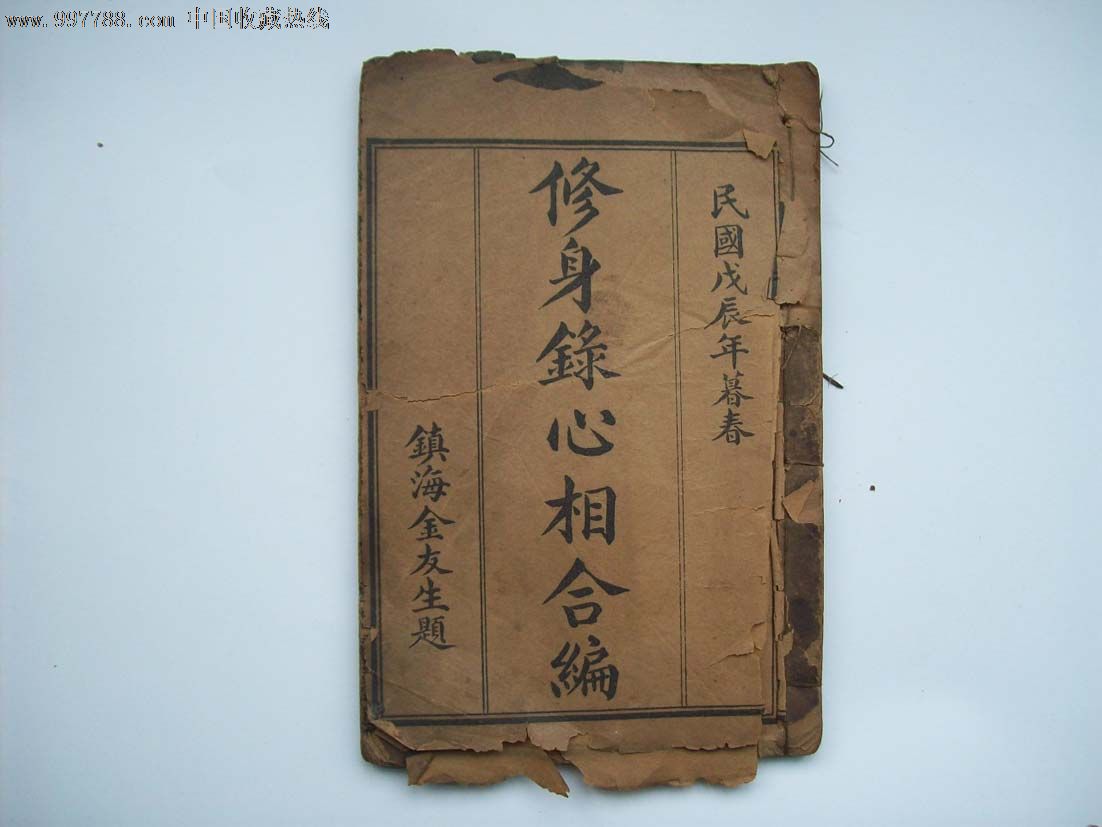 www.997788.com 中国收藏热线
民國戊辰年暮春
修身錄心相合編
鎮海金友生題